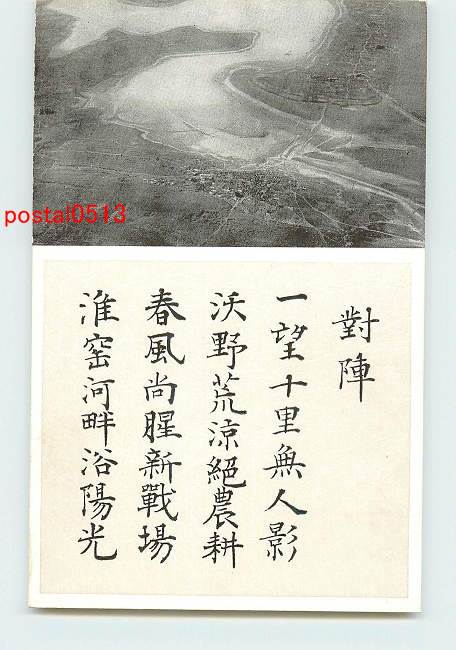 postal0513
對陣
一望十里無人影
沃野荒涼絕農耕
春風尚腥新戰場
淮窑河畔浴陽光